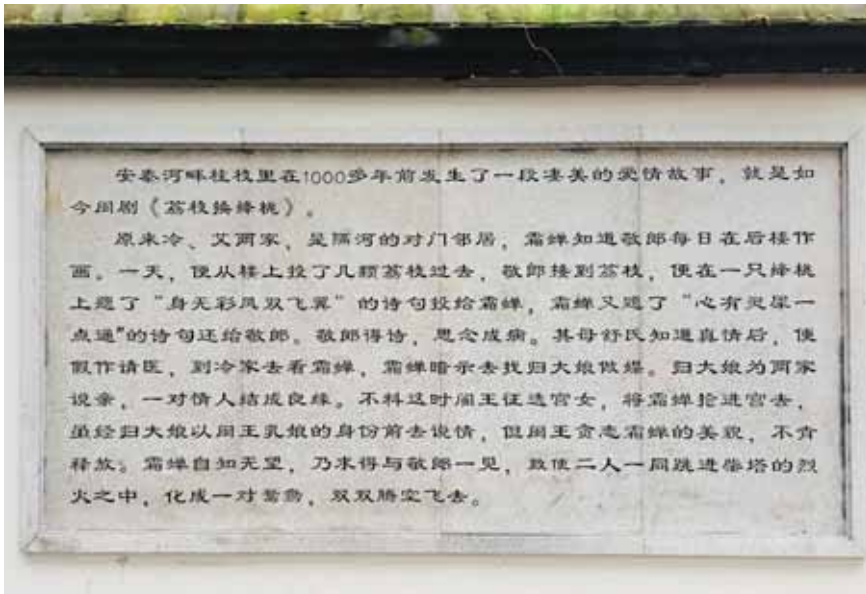 安泰河畔桂枝里在1000多年前发生了一段凄美的爱情故事，就是如
今闽剧《荔枝换绛桃》。
原来冷、艾两家，是隔河的对门邻居，霜蝉知道敬郎每日在后楼作
画。一天，便从楼上投了几颗荔枝过去，敬郎接到荔枝，便在一只绛桃
上题了“身无彩凤双飞翼”的诗句投给霜蝉，霜蝉又题了“心有灵犀一
点通”的诗句还给敬郎。敬郎得诗，思念成病。其母舒氏知道真情后，便
假作请医，到冷家去看霜蝉，霜蝉暗示去找归大娘做媒。归大娘为两家
说亲，一对情人结成良缘。不料这时闽王征选宫女，将霜蝉抢进宫去，
虽经归大娘以闽王乳娘的身份前去说情，但闽王贪恋霜蝉的美貌，不肯
释放。霜蝉自知无望，乃求得与敬郎一见，致使二人一同跳进柴塔的烈
火之中，化成一对鸳鸯，双双腾空飞去。